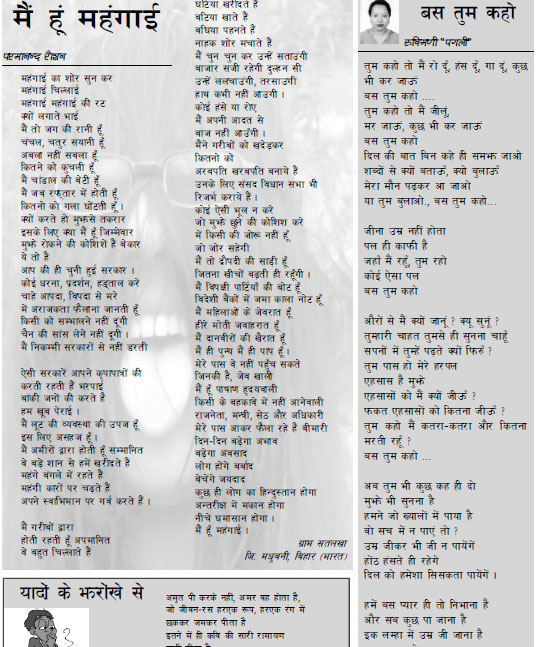 मैं हूं महंगाई
परमानन्द रोशन
महंगाई का शोर सुन कर
महंगाई चिल्लाई
महंगाई महंगाई की रट
क्यों लगाते भाई
मैं तो जग की रानी हूँ
चंचल, चतुर सयानी हूँ
अबला नहीं सबला हूँ
कितने को कुचली हूँ
मैं चांडाल की बेटी हूँ
मैं जब रफ्तार में होती हूँ
कितनो को गला घोंटती हूँ ।
क्यों करते हो मुझसे तकरार
इसके लिए क्या मैं हूँ जिम्मेवार
मुझे रोकने की कोशिशें हैं बेकार
ये तो है
आप की ही चुनी हुई सरकार ।
कोई धरना, प्रदर्शन, हड़ताल करे
चाहे आपदा, विपदा से मरे
में अराजकता फैलाना जानती हूँ
किसी को सम्भालने नहीं दूंगी
चैन की सांस लेने नहीं दूंगी ।
मैं निकम्मी सरकारों से नहीं डरती
ऐसी सरकारें आपने कृपापात्रों की
करती रहतीं हैं भरपाई
बांकी जनों की करते हैं
हम खूब पेराई ।
मैं लूट की व्यवस्था की उपज हूँ
इस लिए असहज हूँ ।
मैं अमीरों द्वारा होती हूँ सम्मानित
वे बड़े शान से हमें खरीदते हैं
महंगे बंगले में रहते हैं
महंगी कारों पर चढ़ते हैं
अपने स्वाभिमान पर गर्व करते हैं ।
मैं गरीबों द्वारा
होती रहती हूँ अपमानित
वे बहुत चिल्लाते हैं
घटिया खरीदते हैं
बटिया खाते हैं
बधिया पहनते हैं
नाहक शोर मचाते हैं
मैं चुन चुन कर उन्हें सताउंगी
बाजार सजी रहेगी दुल्हन सी
उन्हें ललचाउंगी, तरसाउंगी
हाथ कभी नहीं आउगी ।
कोई हंसे या रोए
मैं अपनी आदत से
बाज नहीं आउँगी ।
मैंने गरीबों को खदेड़कर
कितनो को
अरबपति खरबपति बनाये हैं
उनके लिए संसद विधान सभा भी
रिजर्भ कराये हैं ।
कोई ऐसी भूल न करे
जो मुझे छुने की कोशिश करे
में किसी की जोरू नहीं हूँ
जो जोर सहेगी
मैं तो द्रौपदी की साड़ी हूँ
जितना खींचों बढ़ती ही रहूँगी ।
मैं विपक्षी पार्टियों की बोट हूँ
विदेशी बैंकों में जमा काला नोट हूँ
मैं महिलाओं के जेवरात हूँ
हीरे मोती जवाहरात हूँ
मैं दानवीरों की खैरात हूँ
मैं ही पुन्य मैं ही पाप हूँ ।
मेरे पास वे नहीं पहुँच सकते
जिनकी है, जेब खाली
मैं हूँ पाषाण हृदयवाली
किसी के बहकावे में नहीं आनेवाली
राजनेता, मन्त्री, सेठ और अधिकारी
मेरे पास आकर फैला रहे है बीमारी
दिन-दिन बढ़ेगा अभाव
बढ़ेगा अवसाद
लोग होंगे बर्बाद
बेचेंगे जायदाद
कुछ ही लोग का हिन्दुस्तान होगा
अन्तरीक्ष में मकान होगा
नीचे घमासान होगा ।
मैं हूँ महंगाई ।
ग्राम सतलखा
जि. मधुबनी, बिहार (भारत)
बस तुम कहो
रुक्मिणी "पगली"
तुम कहो तो मैं रो दूं, हंस दूं, गा दूं, कुछ
भी कर जाऊं
बस तुम कहो ....
तुम कहो तो मैं जीलूं,
मर जाऊं, कुछ भी कर जाऊं
बस तुम कहो
दिल की बात बिन कहे ही समझ जाओ
शब्दों से क्यों बताऊं, क्यों बुलाऊं
मेरा मौन पढ़कर आ जाओ
या तुम बुलाओ., बस तुम कहो...
जीना उम्र नहीं होता
पल ही काफी है
जहाँ मैं रहूँ, तुम रहो
कोई ऐसा पल
बस तुम कहो
औरों से मैं क्यों जानूं ? क्यू सुनूं ?
तुम्हारी चाहत तुमसे ही सुनना चाहूँ
सपनों में तुम्हें पढ़ते क्यों फिरुं ?
तुम पास हो मेरे हरपल
एहसास है मुझे
एहसासों को मैं क्यों जीऊँ ?
फकत एहसासों को कितना जीऊँ ?
तुम कहो मैं कतरा-कतरा और कितना
मरती रहूँ ?
बस तुम कहो ...
अब तुम भी कुछ कह ही दो
मुझे भी सुनना है
हमने जो ख्यालों में पाया है
वो सच में न पाएं तो ?
उम्र जीकर भी जी न पायेंगें
होंठ हंसते ही रहेगे
दिल को हमेशा सिसकता पायेंगें ।
हमें बस प्यार ही तो निभाना है
और सब कुछ पा जाना है
इक लम्हा में उम्र जी जाना है
यादों के झरोंखे से
अमृत पी करके नहीं, अमर वह होता है,
जो जीवन-रस हरएक रूप, हरएक रंग में
छककर जमकर पीता है
इतने में ही कवि की सारी रामायण